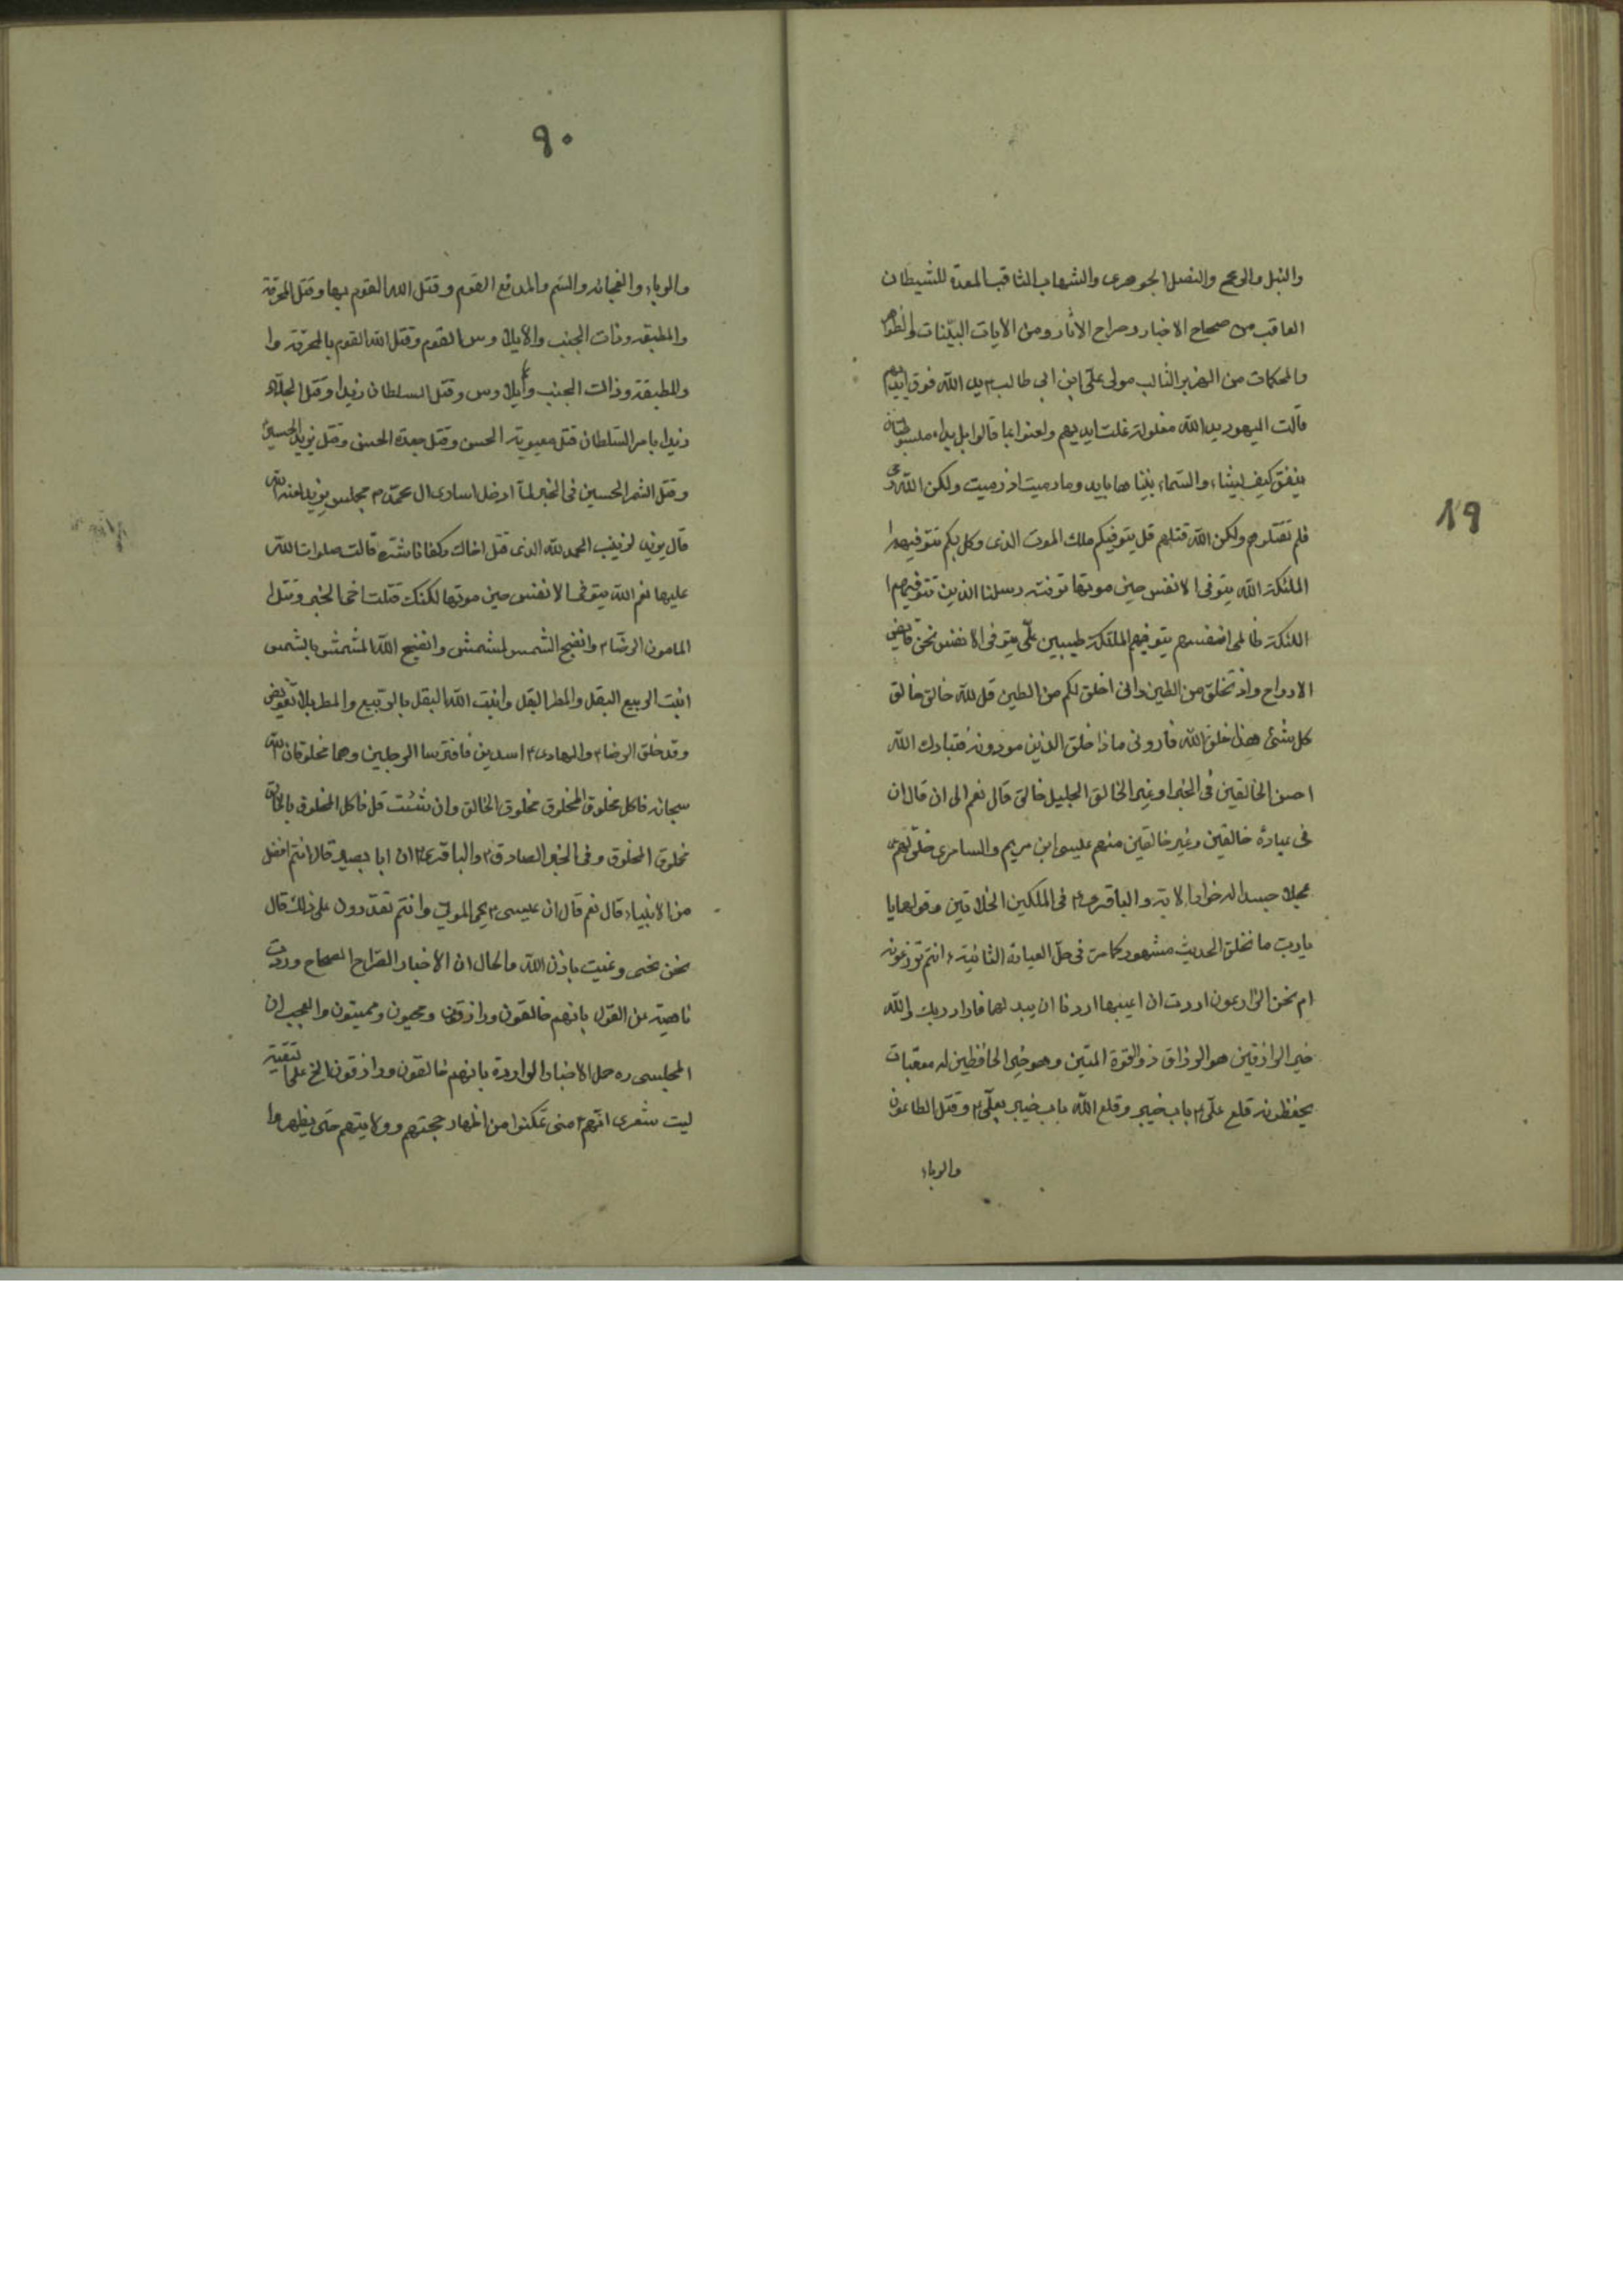 ٨٩
والنبل والرمح والنصل الجوهرى والشهاب الثاقب المعدة للشيطان
العاقب من صحاح الاخبار وصراح الاثار ومن الايات البيّنات والظواهر
والمحكمات من الهزبر الثالب مولى علىّ ابن ابى طالب ٢ يد الله فوق ايديهم
قالت اليهود يد الله مغلولة غلت ايديهم ولعنوا بما قالوا بل يداه مبسوطتان
ينفق كيف يشاء والسماء بنيناها بايد وما رميت اذ رميت ولكن الله رمى
فلم تقتلوهم ولكن الله قتلهم قل يتوفيكم ملك الموت الذى وكل بكم تتوفيهم
الملئكة الله يتوفى الانفس حين موتها توفته رسلنا الذين تتوفيهم
الملئكة ظالمى انفسهم يتوفيهم الملئكة طيبين علىّ يتوفى الانفس نحن قابض
الارواح واذ تخلق من الطين وانى اخلق لكم من الطين قل الله خالق خالق
كل شئ هذا خلق الله فارونى ماذا خلق الذين من دونه فتبارك الله
احسن الخالقين فى الخبر او غير الخالق الجليل خالق قال نعم الى ان قال ان
فى عباده خالقين وغير خالقين منهم عيسى ابن مريم والسامرى خلق لهم
عجلا جسدا له خوار الاية والباقرى ٢ فى الملكين الخلاقين وقولهما يا
يا رب ما نخلق الحديث مشهور كما مر فى حل العبارة الثانية ءانتم تزرعونه
ام نحن الزارعون اردت ان اعيبها اردنا ان يبدلهما فاراد ربك والله
خير الرازقين هو الرزاق ذو القوة المتين وهو خير الحافظين له معقبات
يحفظونه قلع علىّ ٢ باب خيبر وقلع الله باب خيبر بعلىّ ٢ وقتل الطاعون
والوباء
٩٠
والوباء والفجائة والسم والمدافع القوم وقتل الله القوم بها وقتل المحرقة
والمطبقة وذات الجنب والايلاوس القوم وقتل الله القوم بالمحرّقة وا
والمطبقة وذات الجنب وايلاوس وقتل السلطان زيدا وقتل الجلاد
زيدا بامر السلطان قتل معوية الحسن وقتل جعدة الحسن وقتل يزيد الحسين
وقتل الشمر الحسين فى الخبر لمّا ادخل اسارى ال محمّد ٢ مجلس يزيد لعنه الله
قال يزيد لزينب الحمد لله الذى قتل اخاك وكفانا شره قالت صلوات الله
عليها نعم الله يتوفى الانفس حين موتها لكنك قتلت اخى الخبر وقتل
المامون الرضا ٢ وانضج الشمس المشمش وانضج الله المشمش بالشمس
انبت الربيع البقل والمطر البقل وانبت الله البقل بالربيع والمطر بلا تفويض
وقد خلق الرضا ٢ والهادى ٢ اسدين فافترسا الرجلين وهما مخلوقان لله
سبحانه فاكل مخلوق المخلوق مخلوق الخالق وان شئت قل فاكل المخلوق بالخالق
مخلوق المخلوق وفى الخبر الصادق ٢ والباقرى ٢ ان ابا بصير قال انتم افضل
من الانبياء قال نعم قال ان عيسى ٢ يحيى الموتى وانتم تقدرون على ذلك قال
نحن نحيى ونميت باذن الله والحال ان الاخبار الصراح الصحاح وردت
ناهية عن القول بانهم خالقون ورازقون ومحيون ومميتون والعجب ان
المجلسى ره حمل الاخبار الواردة بانهم خالقون ورازقون الخ على التقية
ليت شعرى انهم ٢ متى تمكنوا من اظهار حجتهم وولايتهم حتى يظهروا